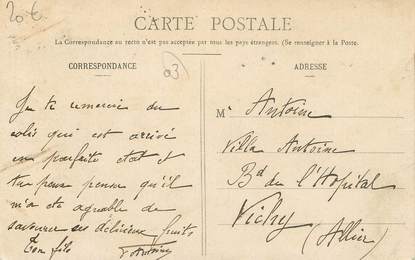 20 €
CARTE POSTALE
La Correspondance au recto n'est pas acceptée par tous les pays étrangers. (Se renseigner à la Poste.
CORRESPONDANCE
ADRESSE
03
Je te remercie du
colis qui est arrivé
en parfaite état et
tu peux penser qu'il
m'a été agréable de
savourer ces délicieux fruits
Ton fils
Antoine
M Antoine
Villa Antoine
Bd de l'Hôpital
Vichy
(Allier)